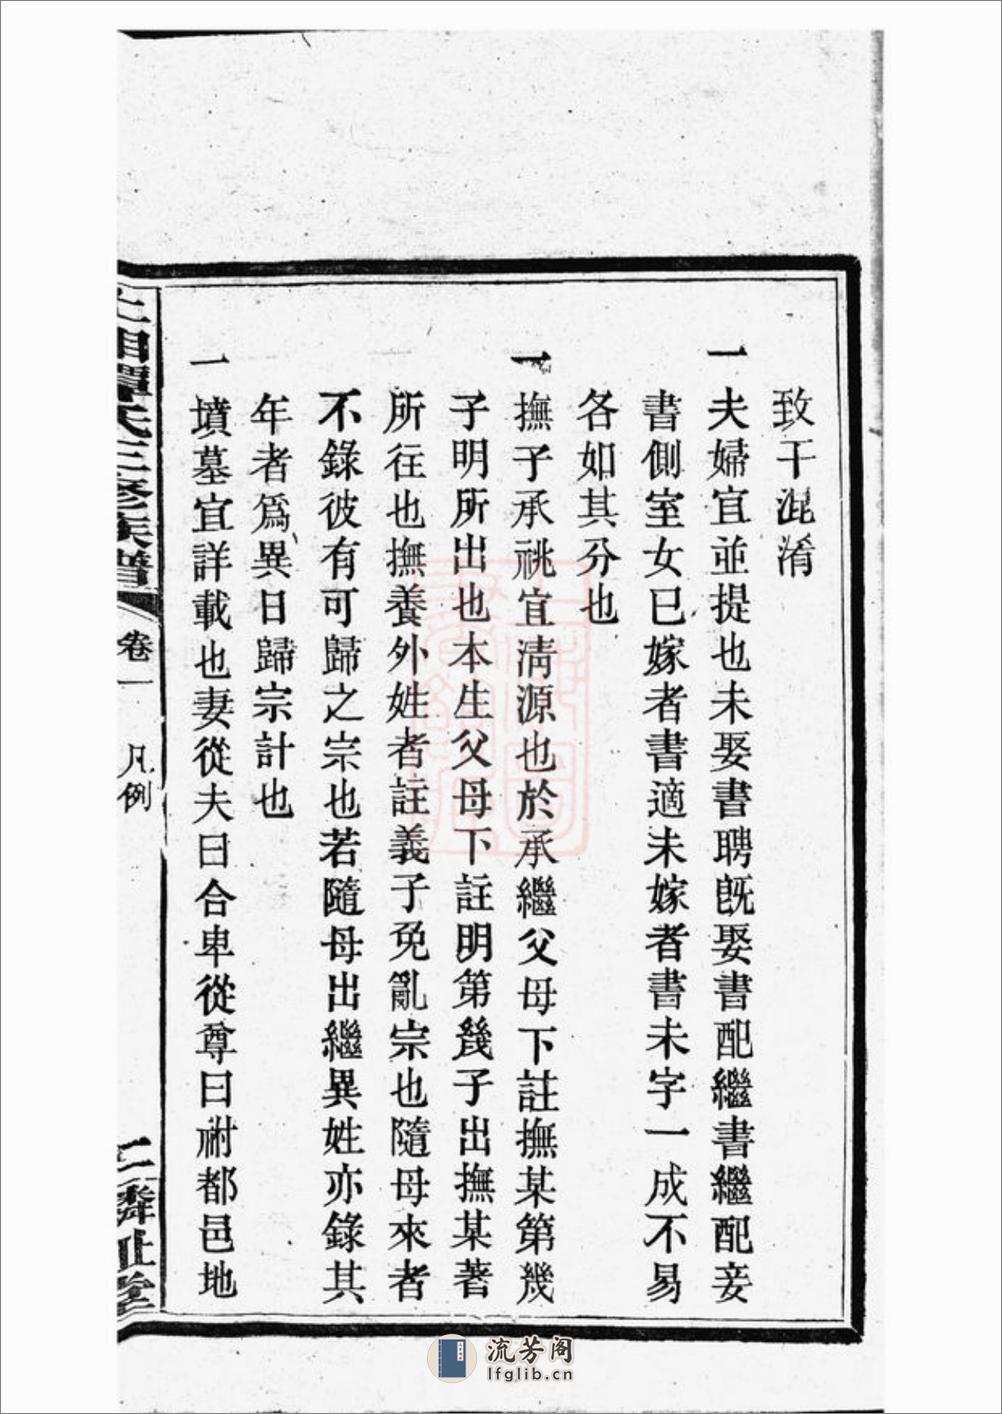 致干混淆
一夫婦宜並提也未娶書聘既娶書配繼書繼配妾
書側室女已嫁者書適未嫁者書未字一成不易
各如其分也
一撫子承祧宜清源也於承繼父母下註撫某第幾
子明所出也本生父母下註明第幾子出撫某著
所往也撫養外姓者註義子免亂宗也隨母來者
不錄彼有可歸之宗也若隨母出繼異姓亦錄其
年者爲異日歸宗計也
一墳墓宜詳載也妻從夫曰合卑從尊曰祔都邑地
上湘譚氏三修族譜 卷一 凡例 二 麟趾堂
流芳阁
lfglib.cn